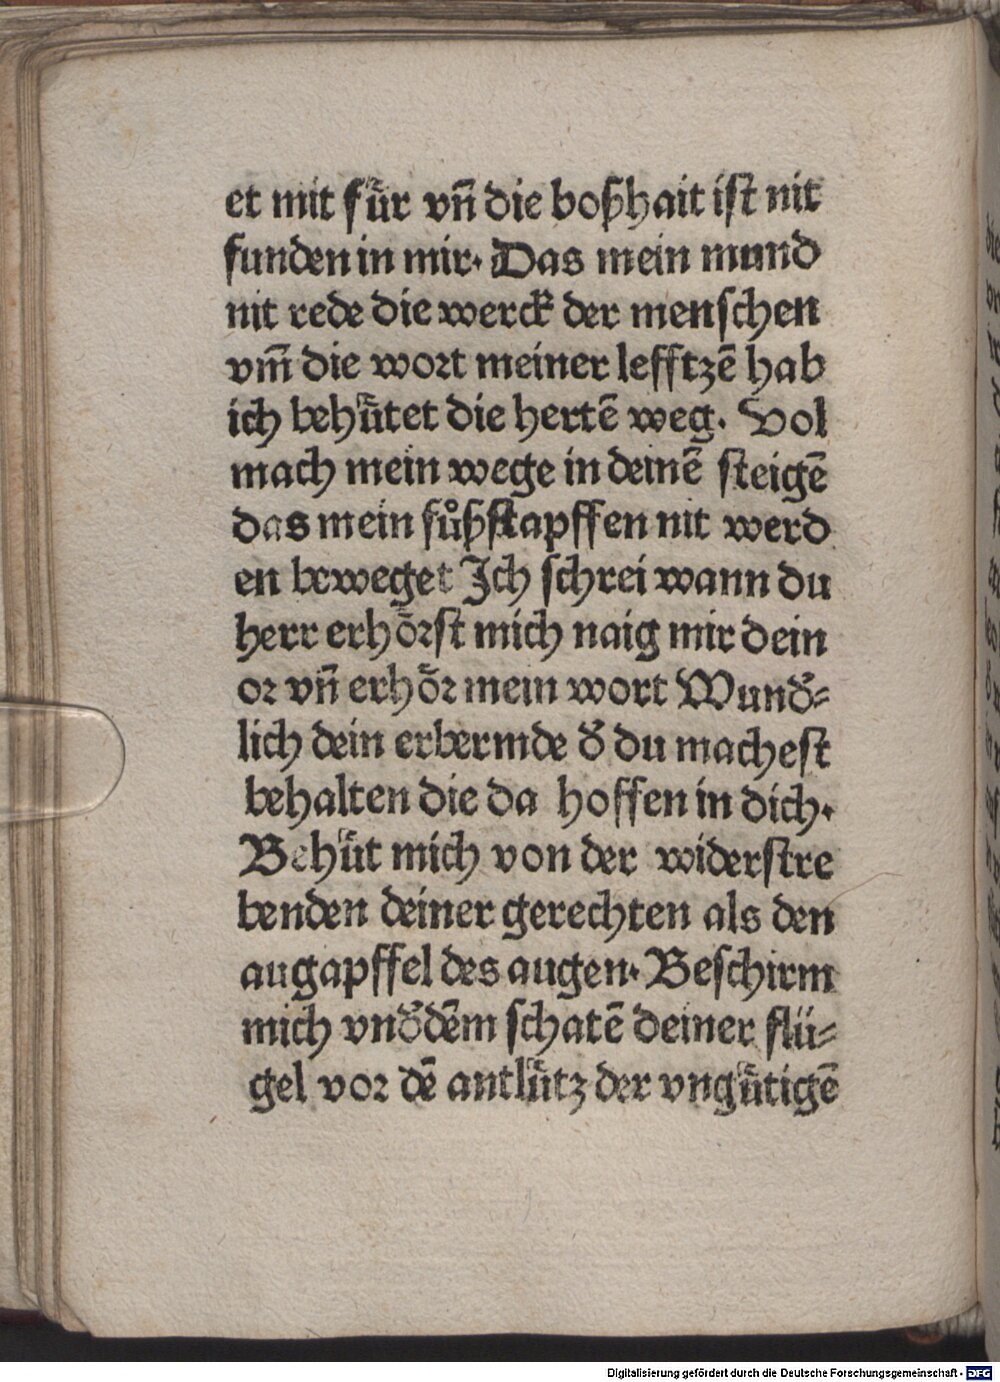 et mit fuͤr vñ die boßhait ist nit
funden in mir. Das mein mund
nit rede die werck der menschen
vm̄ die wort meiner lefftzē hab
ich behuͤtet die hertē weg. Vol
mach mein wege in deinē steigē
das mein fuͦßstapffen nit werd
en beweget Ich schrei wann du
herr erhoͤrst mich naig mir dein
or vñ erhoͤr mein wort Wund̕⸗
lich dein erbermde d̕ du machest
behalten die da hoffen in dich.
Behuͤt mich von der widerstre
benden deiner gerechten als den
augapffel des augen. Beschirm
mich vnd̕ dēm schatē deiner flü⸗
gel vor dē antluͤtz der vnguͤtigē
Digitalisierung gefördert durch die Deutsche Forschungsgemeinschaft - DFG